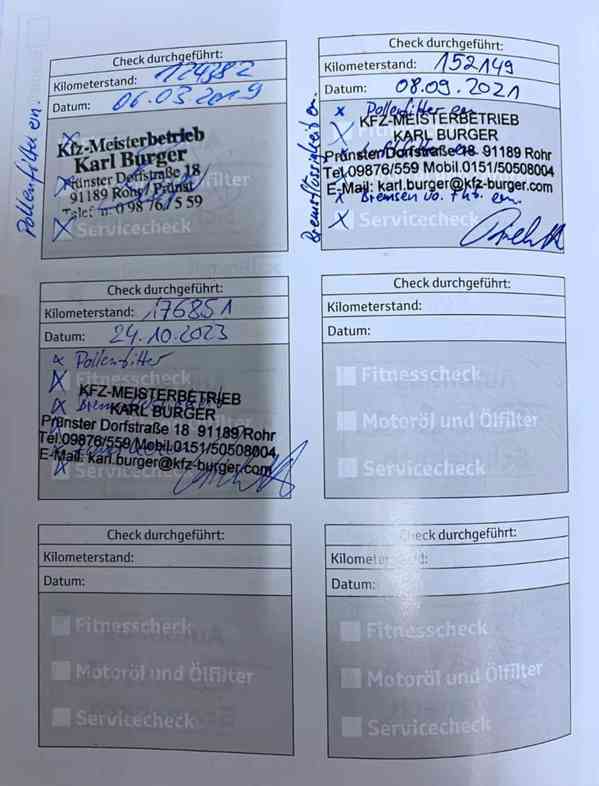 Check durchgeführt:
Kilometerstand: 124382
Datum: 06.03.2019
Pollenfilter ern.
Kfz-Meisterbetrieb
Karl Burger
Prünster Dorfstraße 18
91189 Rohr / Prünst
Telefon 0 98 76/5 59
Servicecheck
Check durchgeführt:
Kilometerstand: 152149
Datum: 08.09.2021
Bremsflüssigkeit ern.
x Pollenfilter ern
KFZ-MEISTERBETRIEB
KARL BURGER
Prünster Dorfstraße 18 91189 Rohr
Tel.09876/559 Mobil.0151/50508004
E-Mail: karl.burger@kfz-burger.com
x Bremsen vo. ern.
Servicecheck
Check durchgeführt:
Kilometerstand: 176851
Datum: 24.10.2023
x Pollenfilter
Fitnesscheck
KFZ-MEISTERBETRIEB
KARL BURGER
Prünster Dorfstraße 18 91189 Rohr
Tel.09876/559 Mobil.0151/50508004
E-Mail: karl.burger@kfz-burger.com
Servicecheck
Check durchgeführt:
Kilometerstand:
Datum:
Fitnesscheck
Motoröl und Ölfilter
Servicecheck
Check durchgeführt:
Kilometerstand:
Datum:
Fitnesscheck
Motoröl und Ölfilter
Servicecheck
Check durchgeführt:
Kilometerstand:
Datum:
Fitnesscheck
Motoröl und Ölfilter
Servicecheck